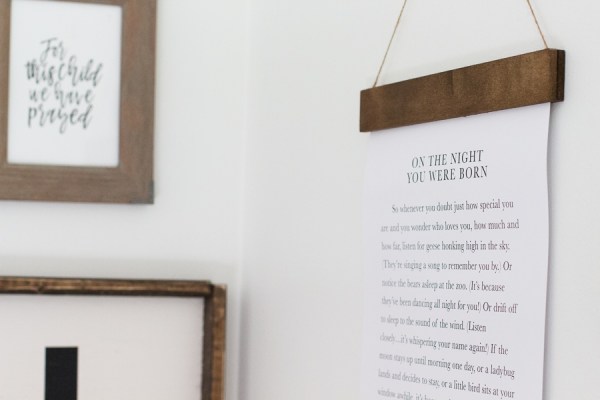 For
this child
we have
prayed
ON THE NIGHT
YOU WERE BORN
So whenever you doubt just how special you
are and you wonder who loves you, how much and
how far, listen for geese honking high in the sky.
(They're singing a song to remember you by.) Or
notice the bears asleep at the zoo. (It's because
they've been dancing all night for you!) Or drift off
to sleep to the sound of the wind. (Listen
closely...it's whispering your name again!) If the
moon stays up until morning one day, or a ladybug
lands and decides to stay, or a little bird sits at your
window awhile, it's